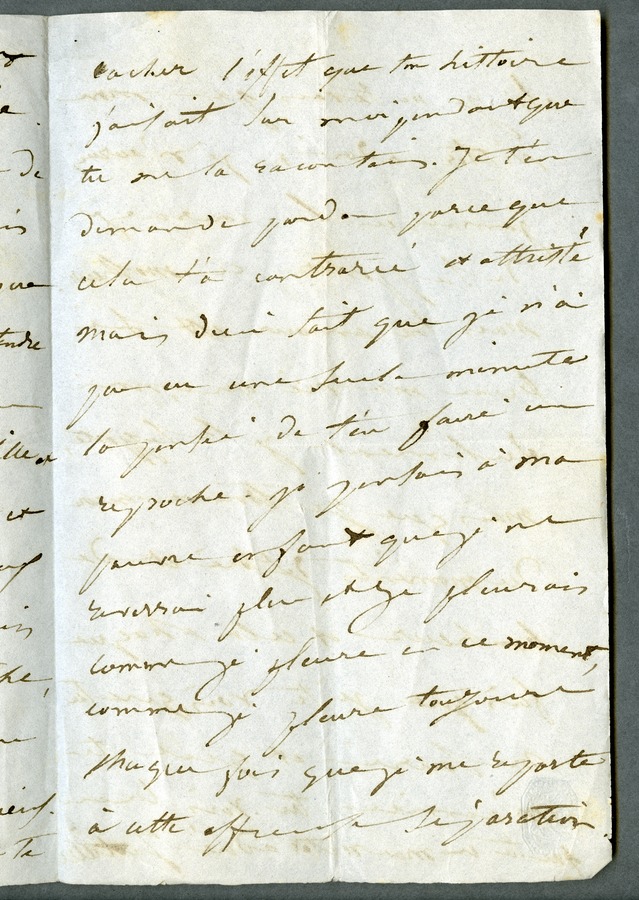 cacher l'effet que ton histoire
faisait sur moi pendant que
tu me la racontais. Je t'en
demande pardon parce que
cela t'a contrarié et attristé
mais Dieu sait que je n'ai
pas eu une seule minute
la pensée de t'en faire un
reproche. je pensais à ma
pauvre enfant que je ne
reverrai plus et je pleurais
comme je pleure en ce moment,
comme je pleure toujours
chaque fois que je me reporte
à cette affreuse séparation.